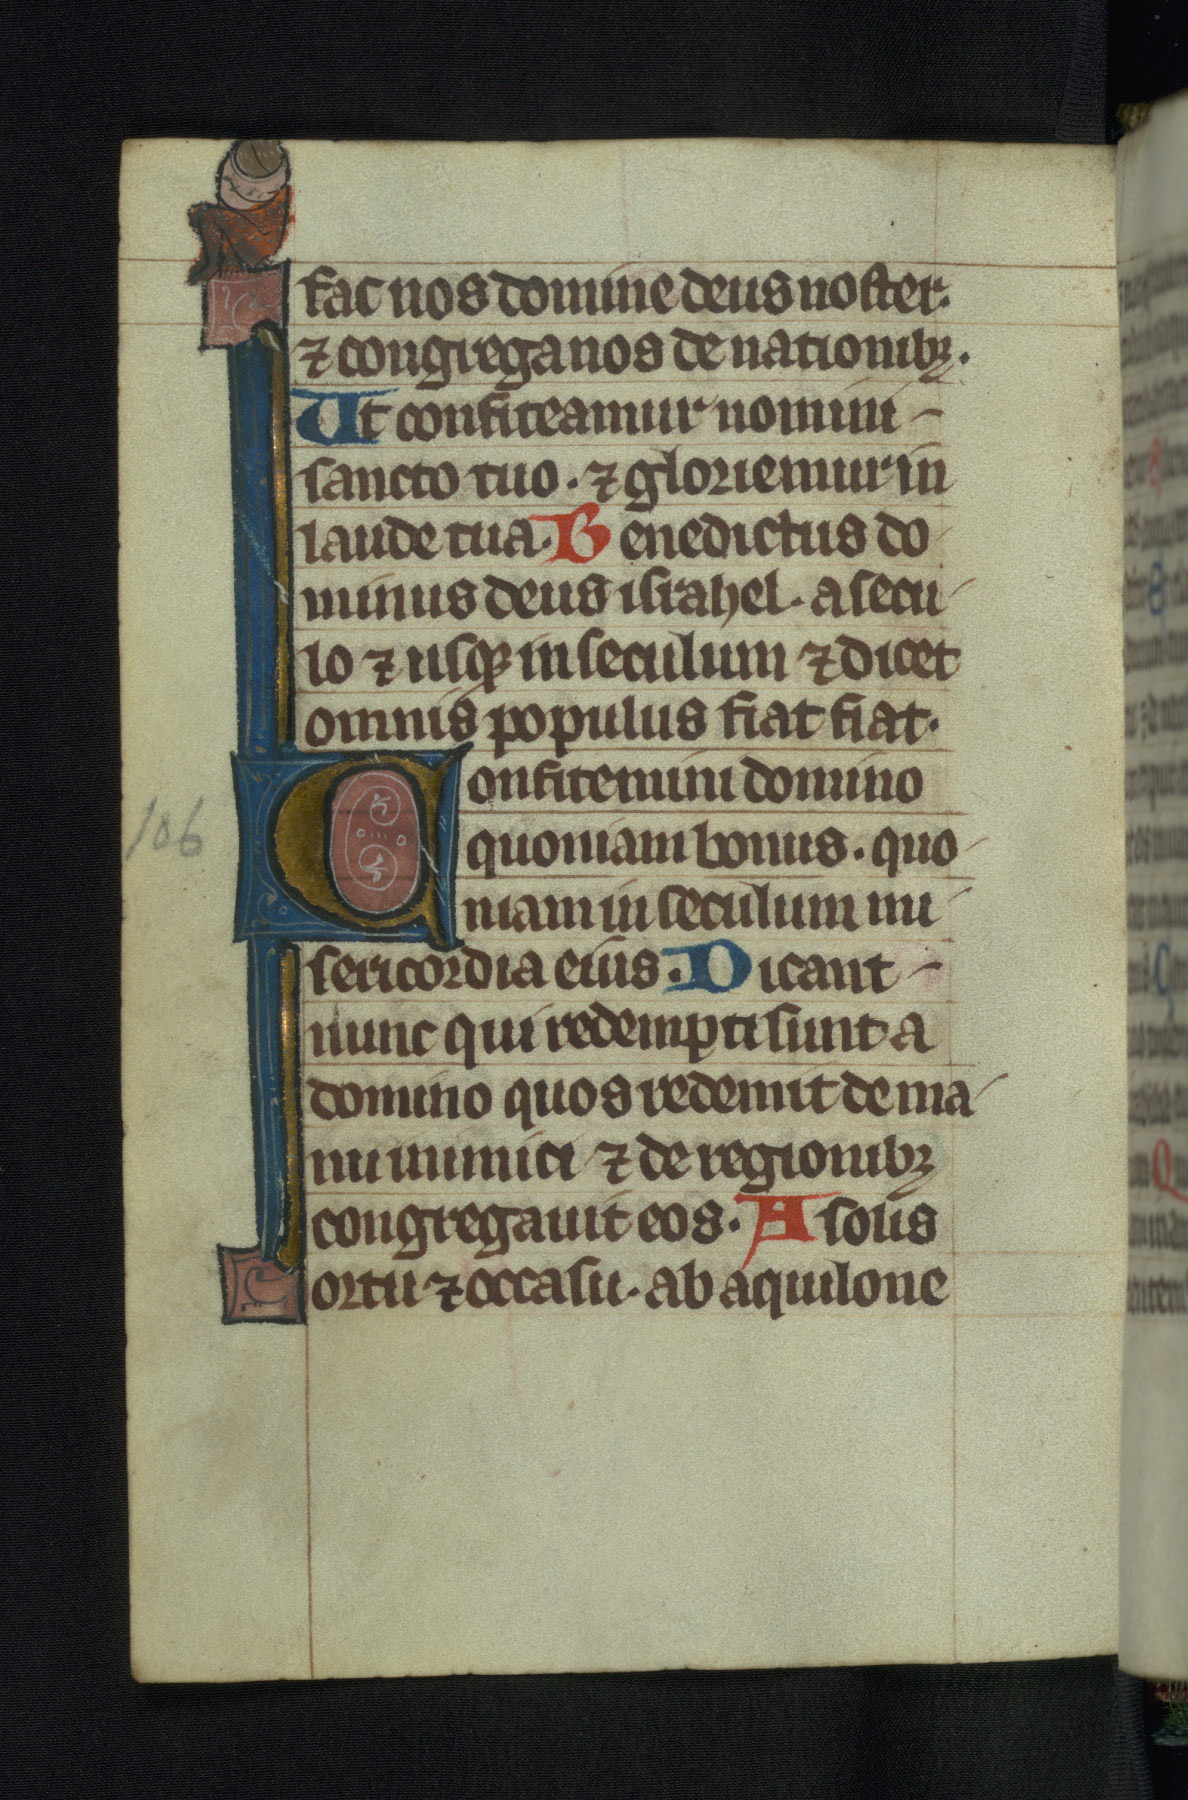 fac nos domine deus noster.
⁊ congrega nos de nationibꝫ.
Ut confiteamur nomini -
sancto tuo. ⁊ gloriemur in
laude tua. Benedictus do
minus deus israhel. a secu
lo ⁊ usqꝫ in seculum ⁊ dicet
omnis populus fiat fiat.
Confitemini domino
quoniam bonus. quo
niam in seculum mi
106
sericordia eius. Dicant -
nunc qui redempti sunt a
domino quos redemit de ma
nu inimici ⁊ de regionibꝫ
congregauit eos. A solis
ortu ⁊ occasu. ab aquilone